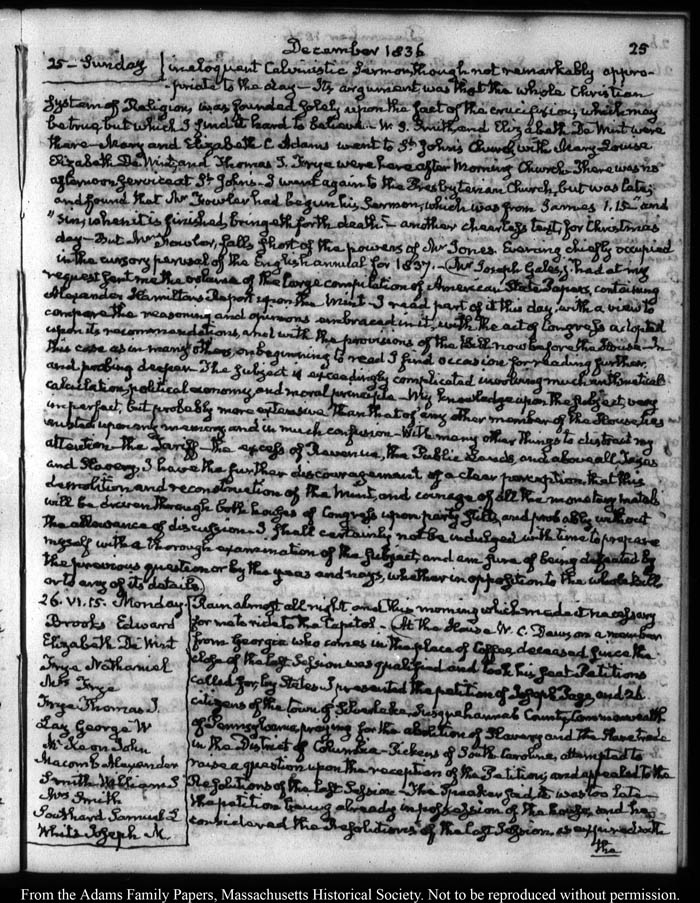 December 1836
25
25 - Sunday
ineloquent Calvinistic Sermon, though not remarkably appro-
-priate to the day - Its argument was that the whole Christian
System of Religion, was founded solely upon the fact of the crucifixion; which may
be true but which I find it hard to believe - W. S. Smith and Elizabeth De Wint were
there - Mary and Elizabeth C. Adams went to St. John's Church, with Mary Louisa
Elizabeth De Wint, and Thomas J. Frye were here after Morning Church. There was no
afternoon service at St. John's - I went again to the Presbyterian Church, but was late;
and found that Mr Fowler had begun his Sermon, which was from James 1.15. "and
"sin, when it is finished, bringeth forth death" - another cheerless text, for Christmas
day - But Mr Fowler, falls short of the powers of Mr Jones. Evening chiefly occupied
in the cursory perusal of the English annual for 1837. - Mr Joseph Gales, had at my
request sent me the volume of the large compilation of American State Papers, containing
Alexander Hamilton's Report upon the Mint - I read part of it this day, with a view to
compare the reasoning and opinions embraced in it, with the act of Congress adopted
upon its recommendations, and with the provisions of the Bill now before the House - In
this case as in many others, on beginning to read I find occasion for reading further
and probing deeper. The subject is exceedingly complicated involving much arithmetical
calculation, political economy and moral principle - My knowledge upon the subject, very
imperfect, but probably more extensive than that of any other member of the House, lies
rusted upon my memory, and in much confusion - With many other things to distract my
attention - the Tariff - the excess of Revenue, the Public Lands, and above all Texas
and Slavery, I have the further discouragement of a clear perception that this
demolition and reconstruction of the Mint, and coinage of all the monetary metals
will be driven through both houses of Congress upon party stilts, and probably without
the allowance of discussion - I shall certainly not be indulged with time to prepare
myself with a thorough examination of the subject, and am sure of being defeated by
the previous question or by the yeas and nays, whether in opposition to the whole bill
or to any of its details
26. VI.15. Monday.
Brooks Edward
Elizabeth De Wint
Frye Nathaniel
Mrs Frye
Frye Thomas J.
Lay George W
McKeon John
Macomb Alexander
Smith William S
Mrs Smith
Southard Samuel L
White Joseph M.
Rain almost all night and this morning which made it necessary
for me to ride to the Capitol - At the House W. C. Dawson a member
from Georgia who comes in the place of Coffee, deceased since the
close of the last Session was qualified and took his seat. Petitions
called for, by States. I presented the petition of Joseph Page, and 26
citizens of the town of Silverlake, Susquehannah County, Commonwealth
of Pennsylvania, praying for the abolition of Slavery and the Slave trade
in the District of Columbia - Pickens of South Carolina, attempted to
raise a question upon the reception of the Petition, and appealed to the
Resolutions of the last Session - The Speaker said it was too late -
the petition being already in possession of the house, and he
considered the Resolutions of the last Session, as expired with
the
From the Adams Family Papers, Massachusetts Historical Society. Not to be reproduced without permission.